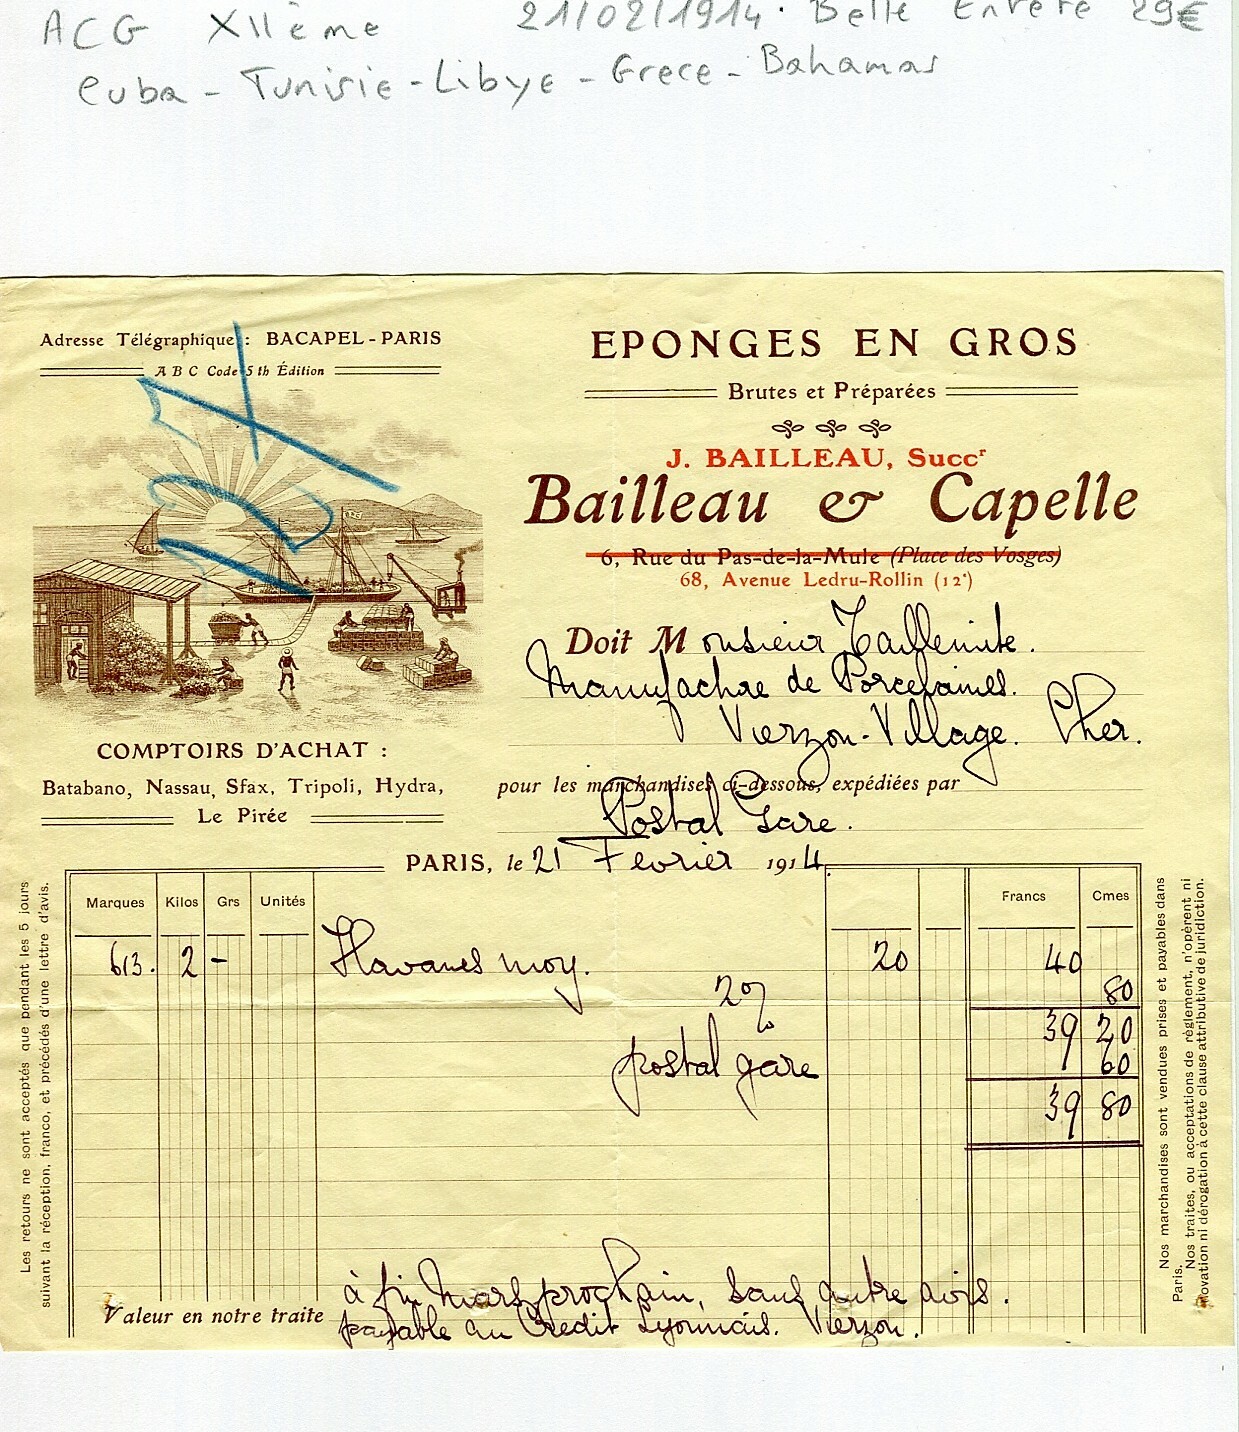 ACG XIIème 21/02/1914. Belle Entete 29€
Cuba - Tunisie - Libye - Grece - Bahamas
Adresse Télégraphique : BACAPEL-PARIS
A B C Code 5th Édition
EPONGES EN GROS
Brutes et Préparées
J. BAILLEAU, Succr
Bailleau & Capelle
6, Rue du Pas-de-la-Mule (Place des Vosges)
68, Avenue Ledru-Rollin (12e)
COMPTOIRS D'ACHAT :
Batabano, Nassau, Sfax, Tripoli, Hydra,
Le Pirée
Doit Monsieur Taillemite.
Manufacture de Porcelaines.
Vierzon-Village. Cher.
pour les marchandises ci-dessous, expédiées par
Postal Gare.
PARIS, le 21 Fevrier 1914.
Marques Kilos Grs Unités Francs Cmes
613. 2 - Havanes moy. 20 40
2% 80
39 20
postal gare 60
39 80
Valeur en notre traite à fin Mars prochain, sans autre avis.
payable au Crédit Lyonnais. Vierzon.
Les retours ne sont acceptés que pendant les 5 jours
suivant la réception, franco, et précédés d'une lettre d'avis.
Nos marchandises sont vendues prises et payables dans
Paris.
Nos traites, ou acceptations de règlement, n'opèrent ni
novation ni dérogation à cette clause attributive de juridiction.